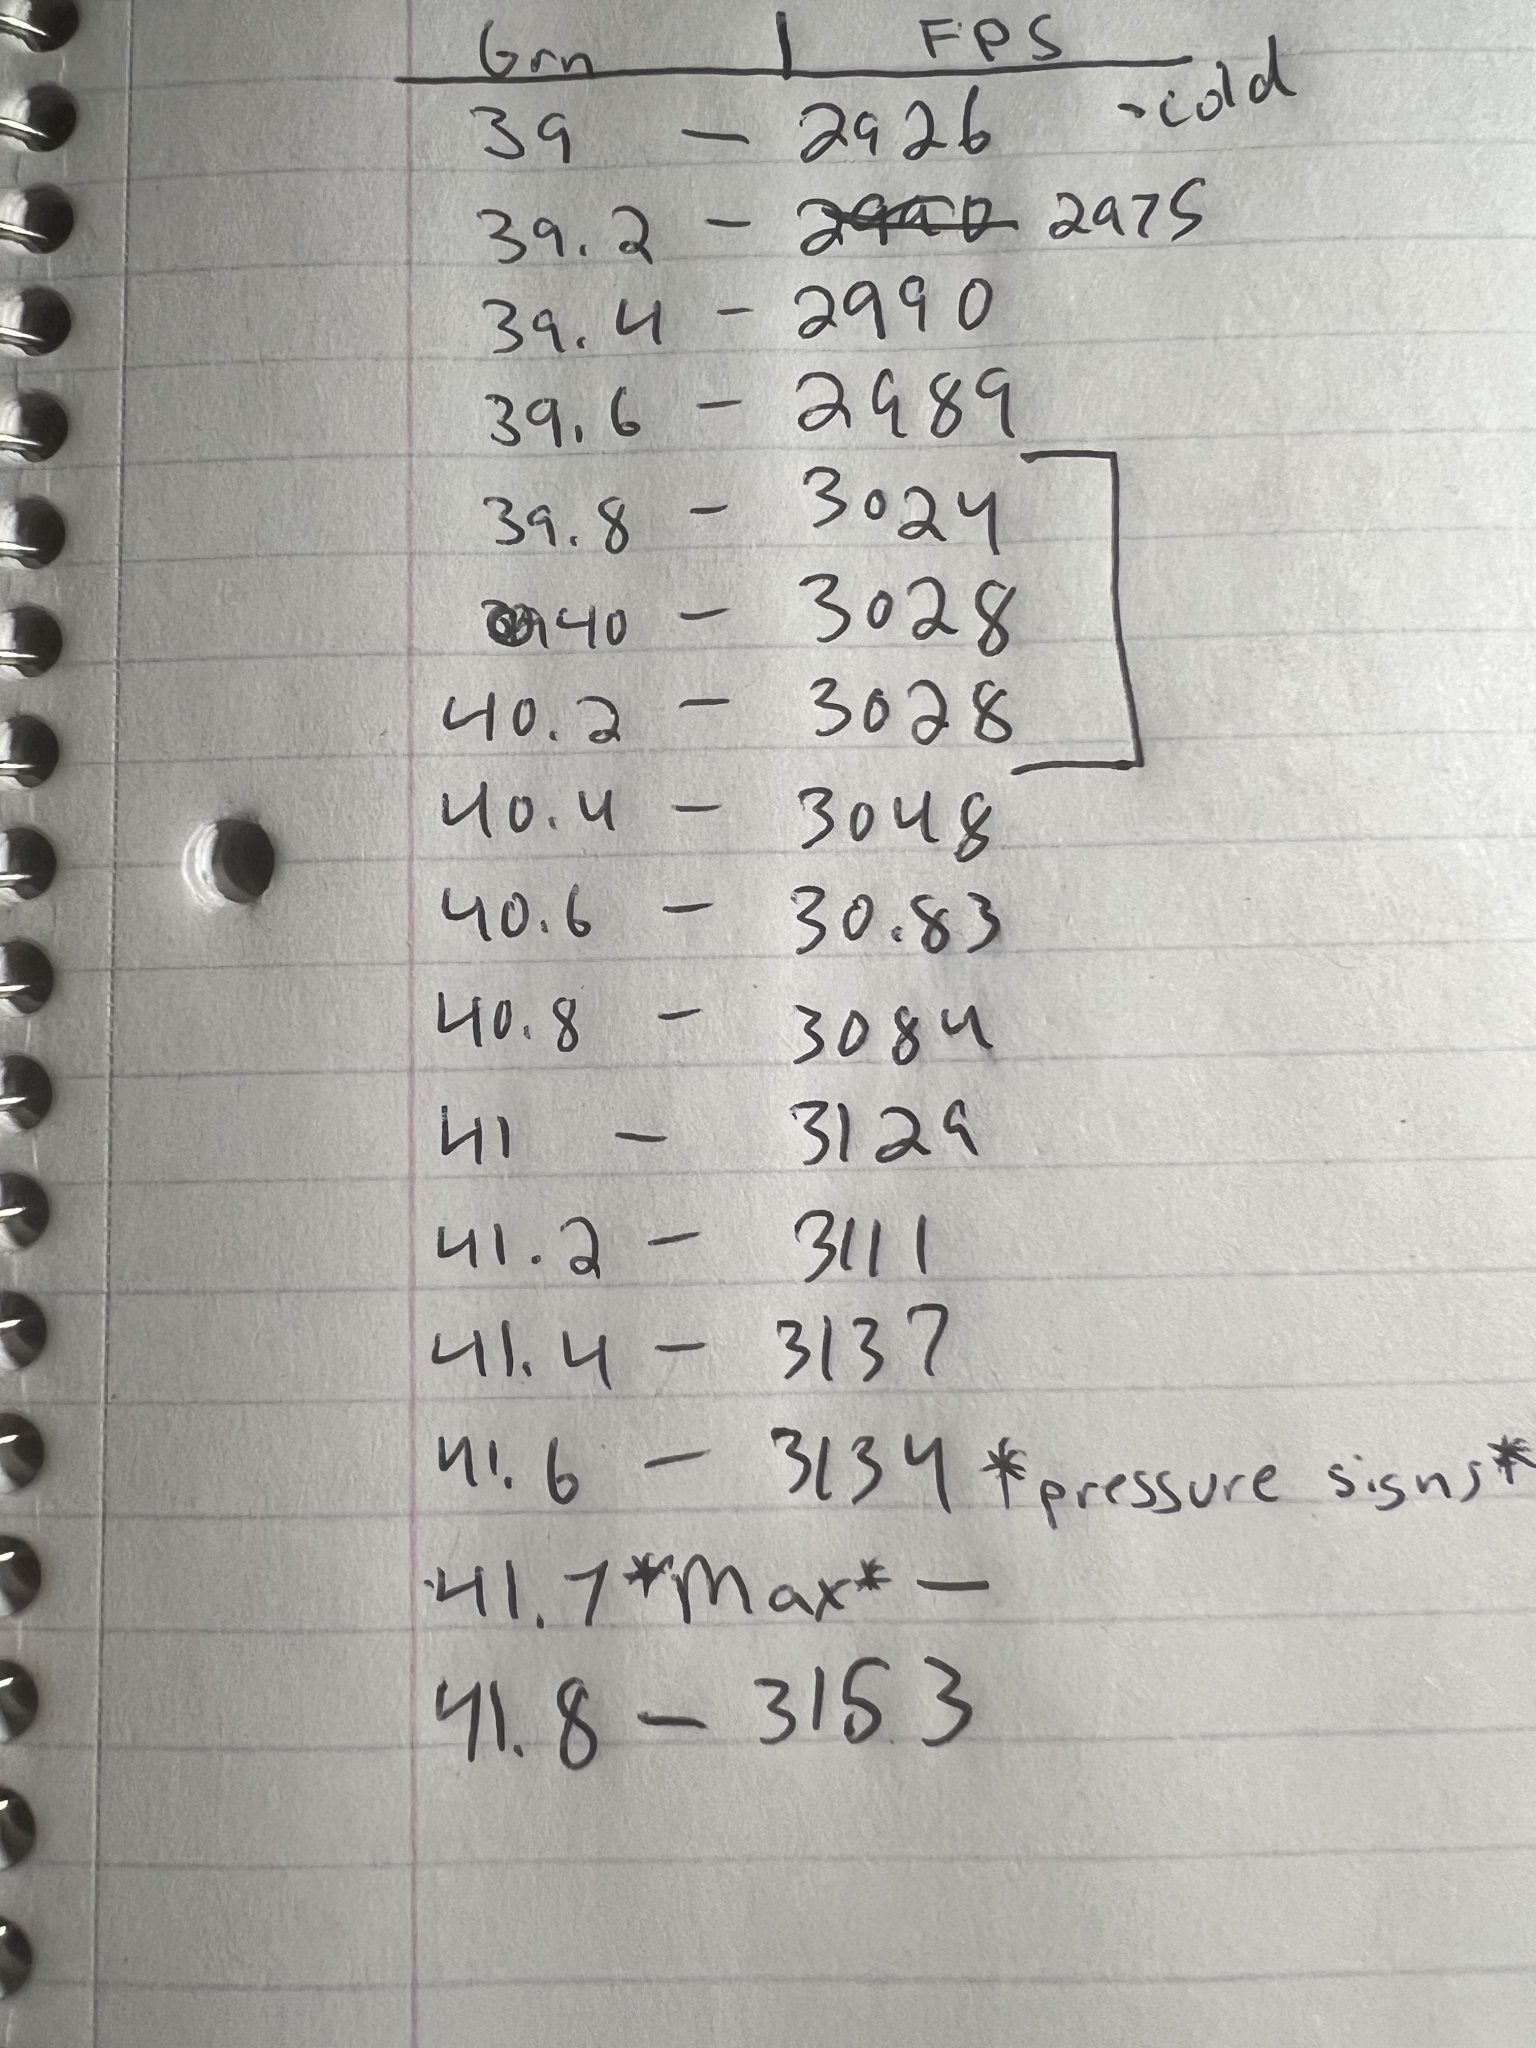 Grn | FPS
39 - 2926 -cold
39.2 - 2990 2975
39.4 - 2990
39.6 - 2989
39.8 - 3024
40 - 3028
40.2 - 3028
40.4 - 3048
40.6 - 30.83
40.8 - 3084
41 - 3129
41.2 - 3111
41.4 - 3137
41.6 - 3134 *pressure signs*
41.7 *Max* -
41.8 - 3153